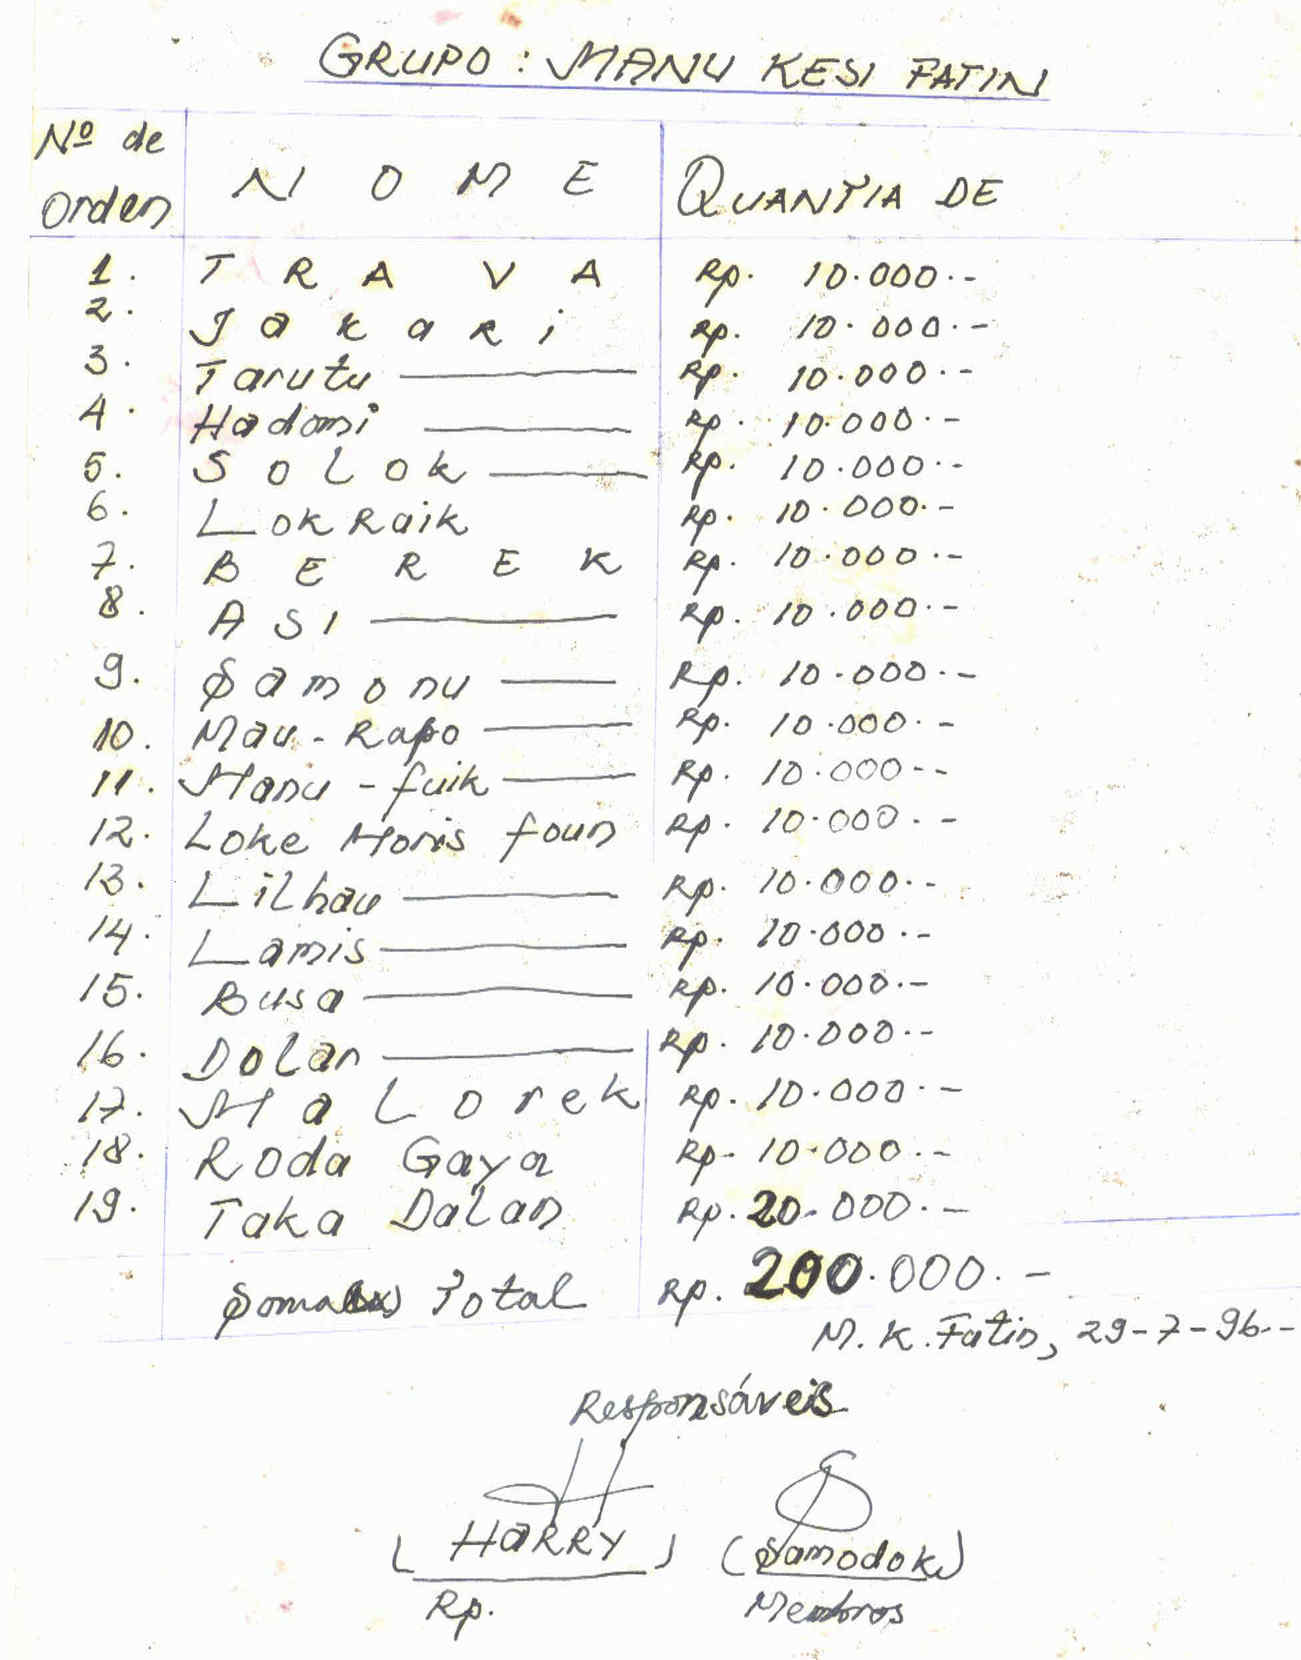 GRUPO : MANU KESI FATIN
Nº de Orden NOME QUANTIA DE
1. TRAVA Rp. 10.000.-
2. Jakari Rp. 10.000.-
3. Tarutu Rp. 10.000.-
4. Hadomi Rp. 10.000.-
5. Solok Rp. 10.000.-
6. Lok Raik Rp. 10.000.-
7. BEREK Rp. 10.000.-
8. ASI Rp. 10.000.-
9. Samonu Rp. 10.000.-
10. Mau-Rapo Rp. 10.000.-
11. Manu-fuik Rp. 10.000.-
12. Loke Horis foun Rp. 10.000.-
13. Lilhau Rp. 10.000.-
14. Lamis Rp. 10.000.-
15. Busa Rp. 10.000.-
16. Dolar Rp. 10.000.-
17. Ma Lorek Rp. 10.000.-
18. Roda Gaya Rp. 10.000.-
19. Taka Dalan Rp. 20.000.-
Total Rp. 200.000.-
M. K. Fatin, 29-7-96.-
Responsáveis
(HARRY) (Samodok)
Rp. Membros